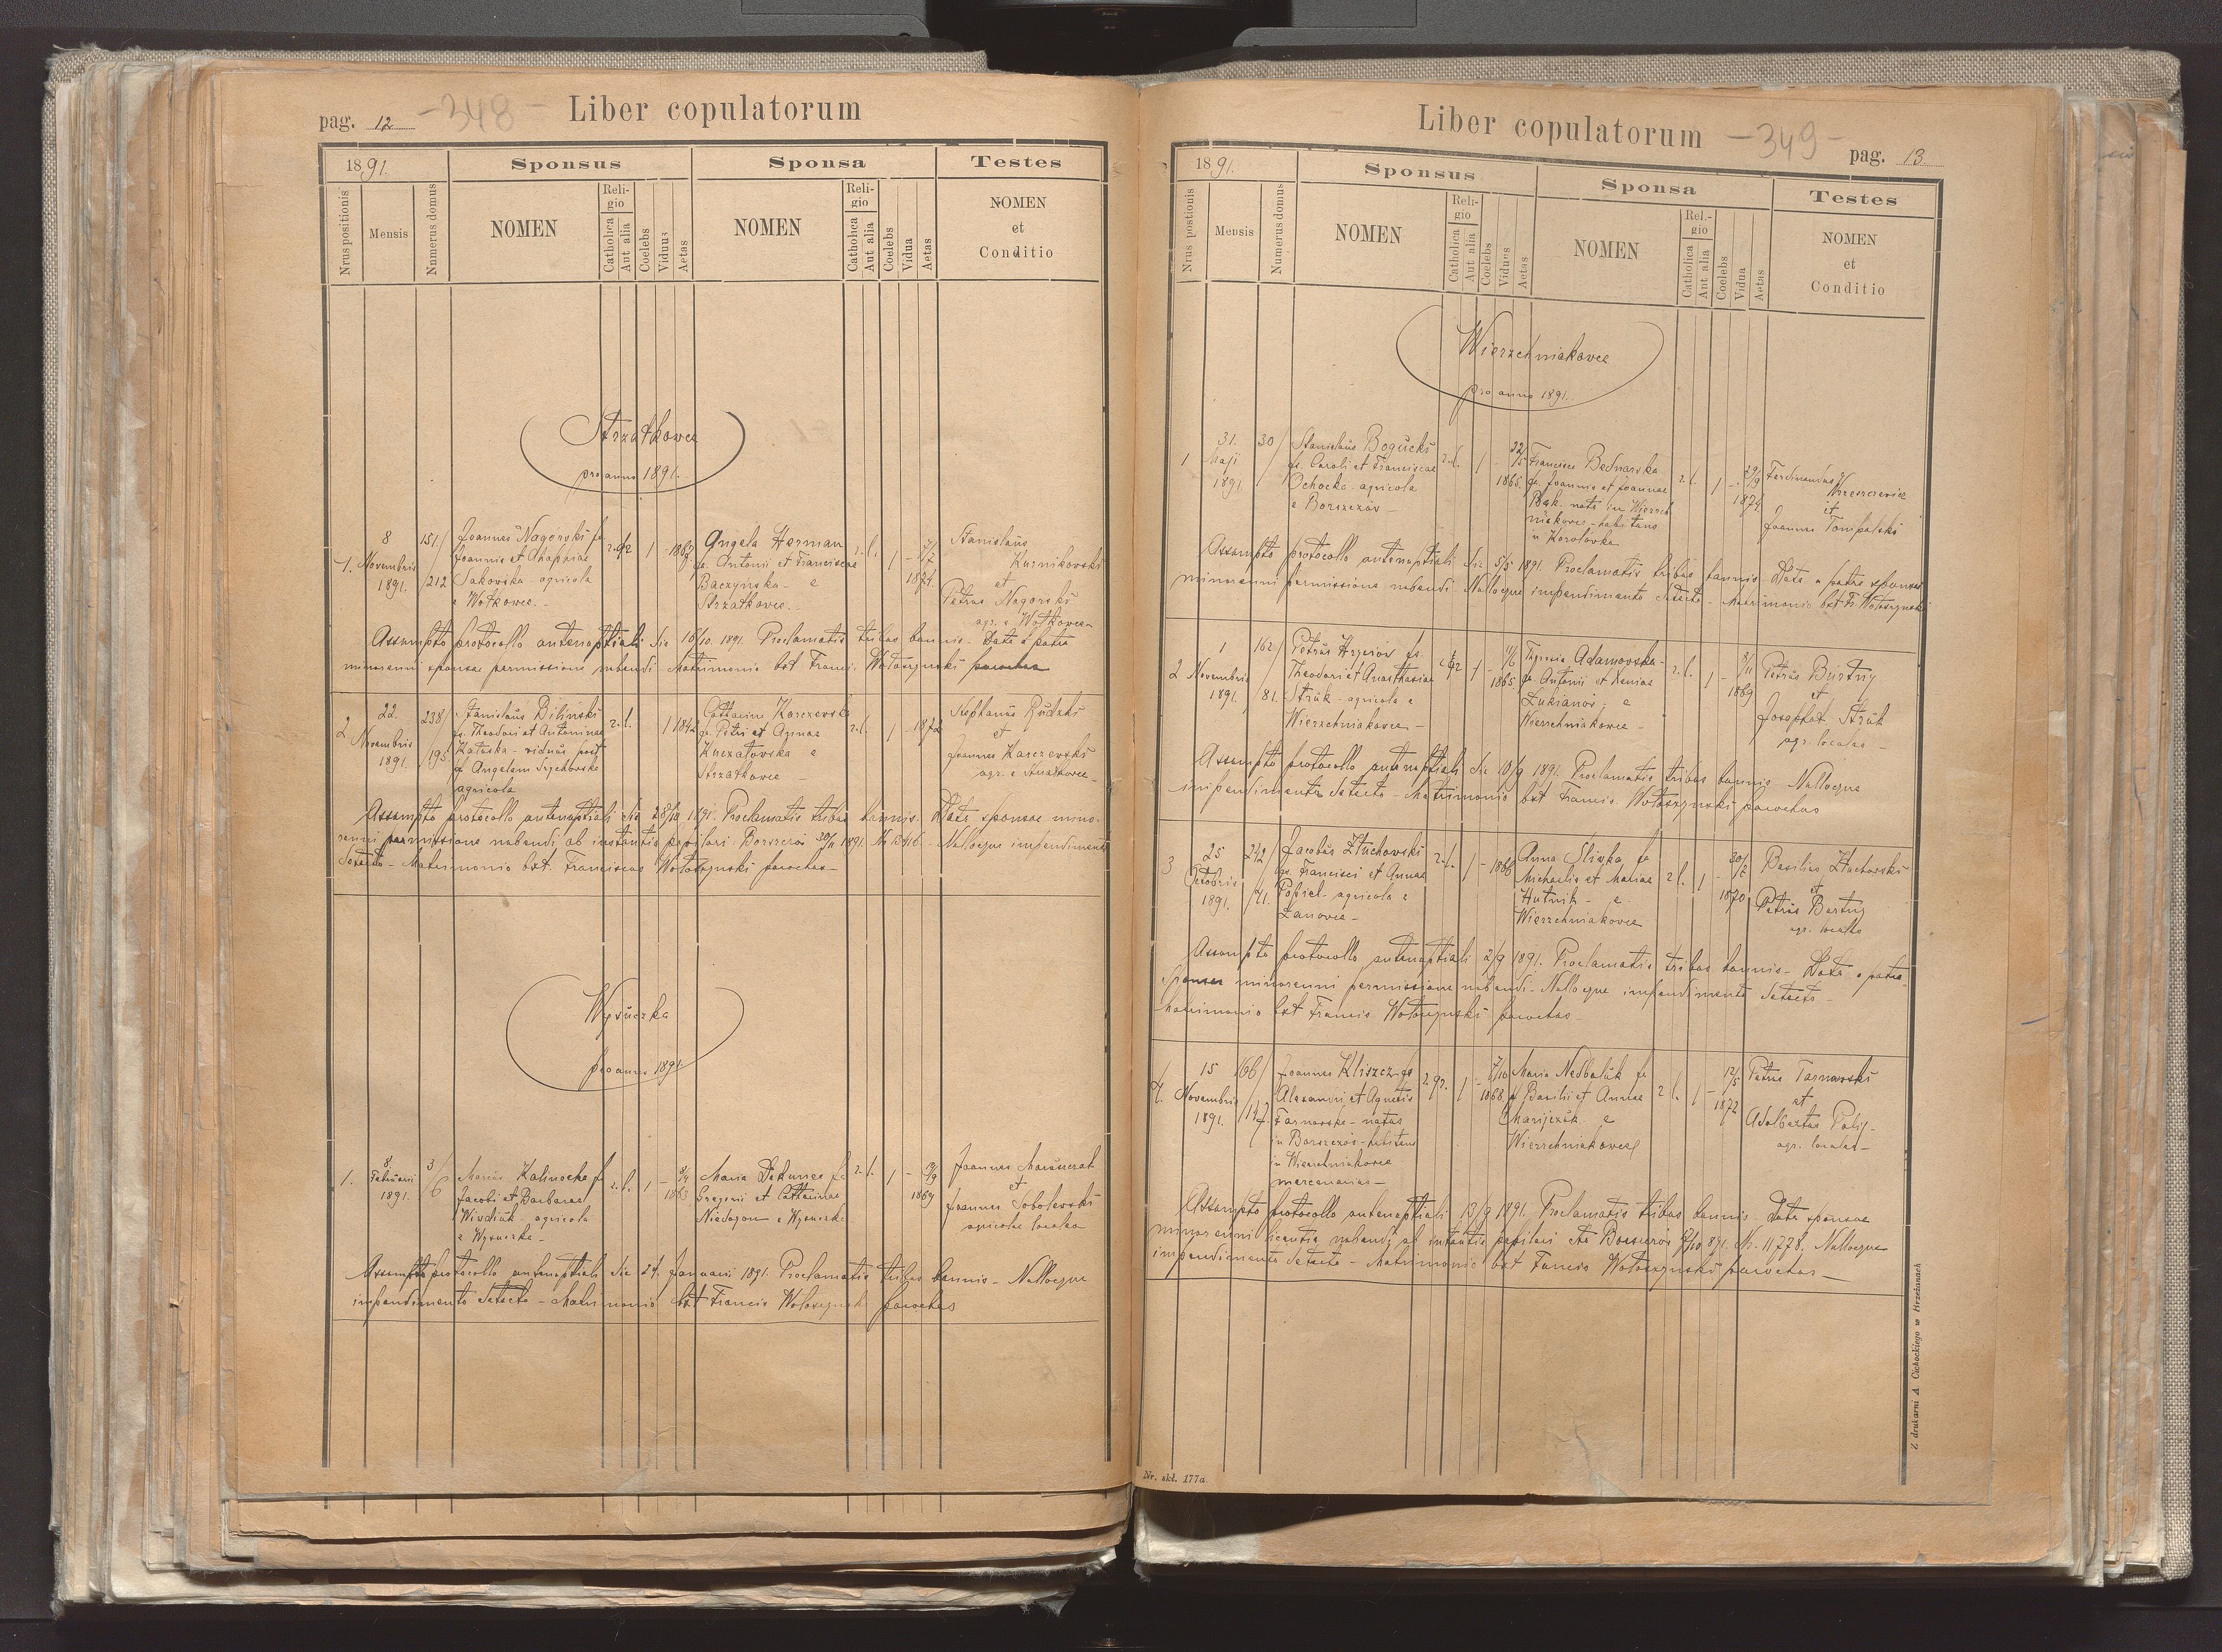 pag. 12
-348-
Liber copulatorum
1891.
Sponsus
Sponsa
Testes
Nrus positionis
Mensis
Numerus domus
NOMEN
Religio
Catholica
Aut alia
Coelebs
Viduus
Aetas
NOMEN
Religio
Catholica
Aut alia
Coelebs
Vidua
Aetas
NOMEN
et
Conditio
Strzałkowce
pro anno 1891.
1.
8
Novembris
1891.
151/
/212
Joannes Nagórski fs.
Joannis et Agapiae
Sakowska - agricola
e Wołkowce.
1
1867
Angela Herman
fa. Antonii et Franciscae
Baczyńska - e
Strzałkowce.
r. l.
1
1871.
Stanislaus
Kurnikowski
et
Petrus Nagorski
agr. e Wołkowce
Assumpto protocollo antenuptiali die 16/10 1891. Proclamatis tribus bannis. Data a patre
minorenni sponsae permissione nubendi. Matrimonio bxt Franc. Wołoszynski
2
22.
Novembris
1891.
238/
/195
Stanislaus Biliński
fs. Theodori et Antoninae
Kataska - viduus post
Angelam
agricola
r. l.
1
1842
Catharina Karczewska
fa. Petri et Annae
e
Strzałkowce
r. l.
1
1872
Stephanus Rudzki
et
Joannes Karczewski
agr. e Strzałkowce
Assumpto protocollo antenuptiali die 28/10 1891. Proclamatis tribus bannis. Data sponsae mino-
renni permissione nubendi ab instantia pupilari Borszczów 30/11 1891. Nulloque impendimento
detecto - Matrimonio bxt. Franciscus Wołoszynski parochus
Wysuczka
pro anno 1891
1.
8
Februarii
1891.
3/
/6
Marcus Kalinocha fs.
Jacobi et Barbarae
Wiwdiuk - agricola
e Wysuczka
r. l.
1
1863
Maria fa.
Gregorii et Catharinae
e Wysuczka
r. l.
1
1869
Joannes
et
Joannes Sobolewski
agricolae locales
Assumpto protocollo antenuptiali die 24. Januarii 1891. Proclamatis tribus bannis - Nulloque
impendimento detecto - Matrimonio bxt Francis Wołoszynski parochus
Liber copulatorum
-349-
pag. 13
1891.
Sponsus
Sponsa
Testes
Nrus postionis
Mensis
Numerus domus
NOMEN
Religio
Catholica
Aut alia
Coelebs
Viduus
Aetas
NOMEN
Rel.-gio
Catholica
Aut alia
Coelebs
Vidua
Aetas
NOMEN
et
Conditio
Wierzchniakowce
pro anno 1891.
1
31.
Maji
1891.
30/
Stanislaus Bogucki
fs. Caroli et Franciscae
Ochocka - agricola
e Borszczów
r. l.
1
22/5
1865.
Francisca Bednarska
fa. Joannis et Joannae
Bąk. nata in Wierzch-
niakowce - habitans
in Korolówka
r. l.
1
29/9
1874
Ferdinandus
et
Joannes Tompalski
Assumpto protocollo antenuptiali die 5/5 1891. Proclamatis tribus bannis. Data a patre sponsae
minorenni permissione nubendi - Nulloque impendimento detecto - Matrimonio bxt Fr. Wołoszynski
2
1
Novembris
1891.
162/
/81.
Petrus Hryciów fs.
Theodori et Anasthasiae
Struk - agricola e
Wierzchniakowce -
1
1865.
Adamowska
fa. Antonii et Xeniae
Łukianów e
Wierzchniakowce -
r. l.
1
8/11
1869
Petrus Burtny
et
Josaphat Struk
agr. locales
Assumpto protocollo antenuptiali die 10/9 1891. Proclamatis tribus bannis Nulloque
impendimento detecto - Matrimonio bxt Francis. Wołoszynski parochus
3
25
Octobris
1891.
242/
/71.
Jacobus Złuchowski
fs. Francisci et Annae
Popiel - agricola e
Łanowce -
r. l.
1
1866
Anna Śliwka fa
Michaelis et Mariae
Hutnik - e
Wierzchniakowce
r. l.
1
30/7
1870
Basilius Złuchowski
et
Petrus Burtny
agr. locales
Assumpto protocollo antenuptiali 2/9 1891. Proclamatis tribus bannis - Data a patre
sponsae minorenni permissione nubendi - Nulloque impendimento detecto -
Matrimonio bxt Francis Wołoszynski parochus
4.
15
Novembris
1891.
166/
/147.
Joannes Kliszcz fs
Alexandri et Agnetis
Tarnowska - natus
in Borszczów - habitans
in Wierzchniakowce
mercenarius -
1
7/10
1868
Maria Nedbaluk fa
Basilii et Annae
e
Wierzchniakowce
r. l.
1
12/5
1872
Petrus Tarnowski
et
Adalbertus
agr. locales
Assumpto protocollo antenuptiali 13/9 1891. Proclamatis tribus bannis. Data sponsae
minorenni licentia nubendi ab instantia pupilari Borszczów 891. Nr. 11778. Nulloque
impendimento detecto - Matrimonio bxt Francis Wołoszynski parochus -
Nr. skł. 177a
Z drukarni A. Cichockiego w Brzeżanach